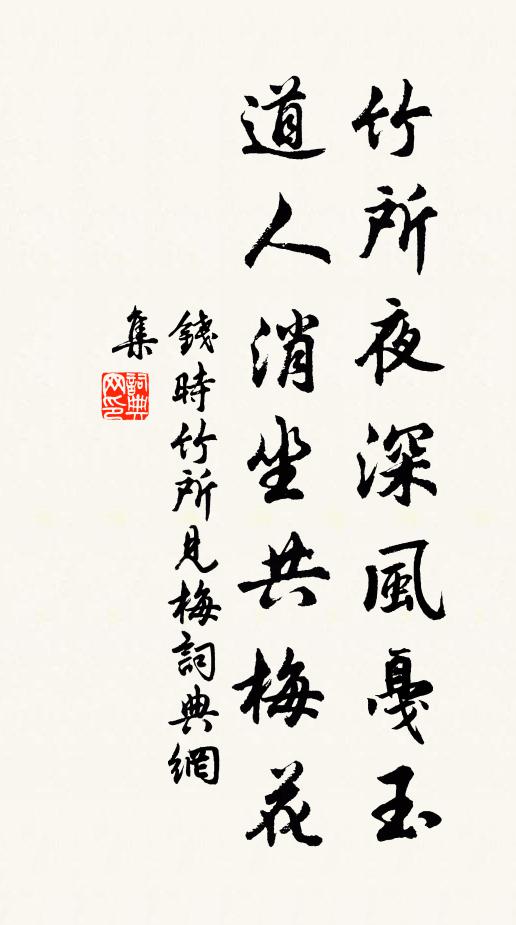 竹所夜深風戛玉
道人消坐共梅花
錢時竹所見梅詞典網
集
詞典網印